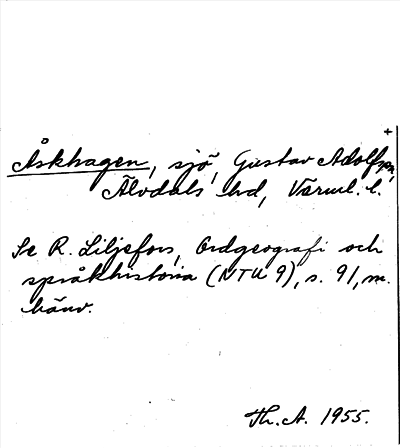 Åskhagen, sjö, Gustav Adolfs sn,
Älvdals hd, Värml. l.
Se R. Liljefors, Ordgeografi och
språkhistoria (NTU 9), s. 91, m.
hänv.
Th. A. 1955.